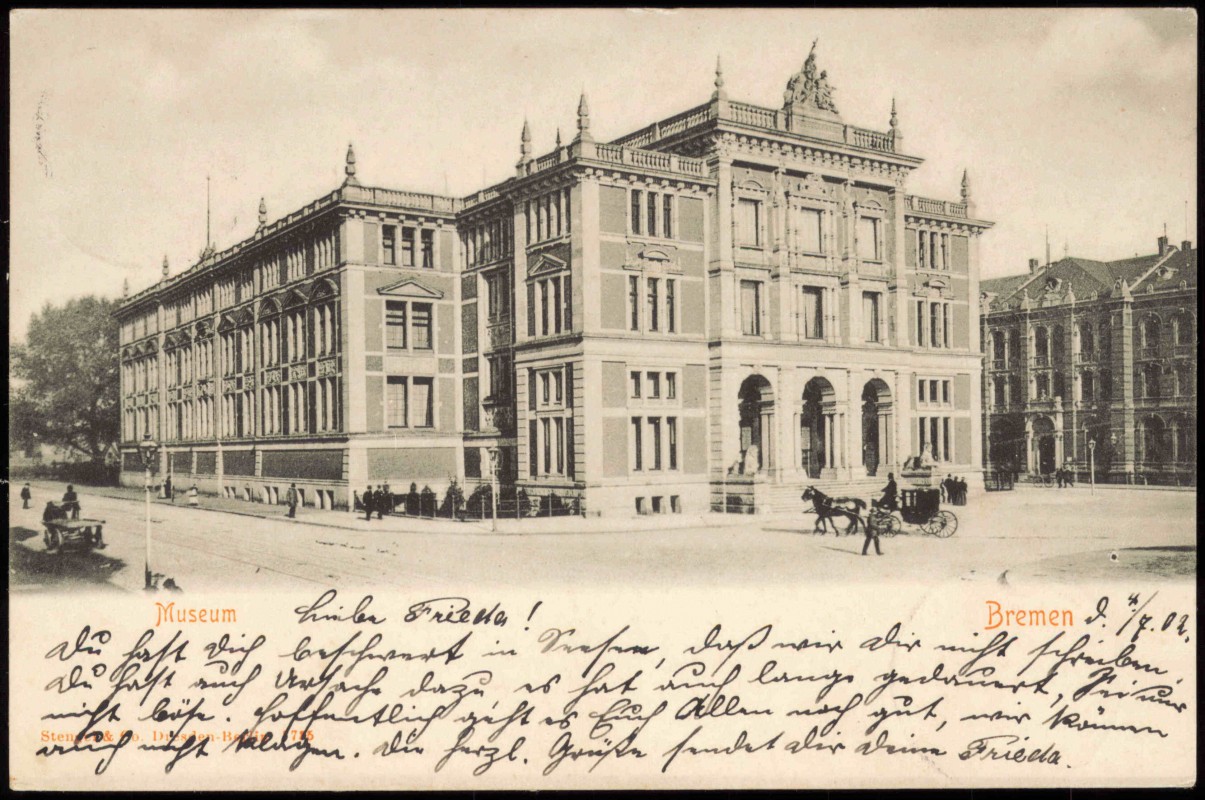 Museum
Liebe Frieda!
Bremen
d. 4/7.02.
Du hast Dich beschwert in Seesen, daß wir Dir nicht schreiben.
Du hast auch Ursache dazu, es hat auch lange gedauert, Sei nur
nicht böse. Hoffentlich geht es Euch Allen noch gut, wir können
Stengel & Co. Dresden-Berlin 1785
auch nicht klagen. Die herzl. Grüße sendet Dir Deine Frieda.